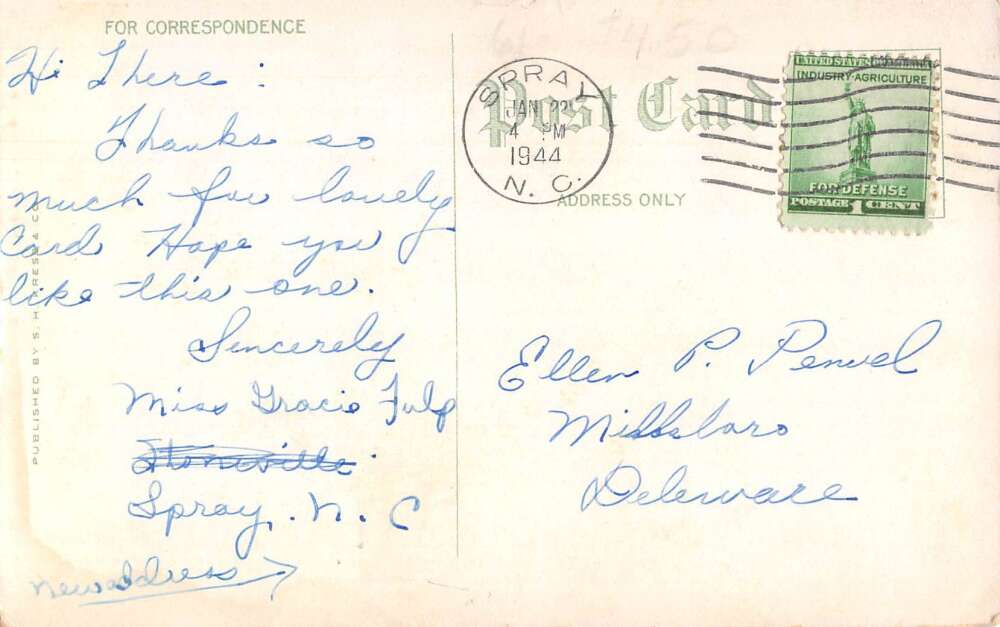 FOR CORRESPONDENCE
Hi There:
Thanks so
much for lovely
Card Hope you
like this one.
Sincerely
Miss Gracie Fulp
Stoneville
Spray, N. C
new address
PUBLISHED BY S. H.
61 $4.50
Post Card
ADDRESS ONLY
SPRAY
JAN 22
4 PM
1944
N. C.
UNITED STATES
INDUSTRY-AGRICULTURE
FOR DEFENSE
POSTAGE 1 CENT
Ellen P. Penuel
Millsboro
Deleware